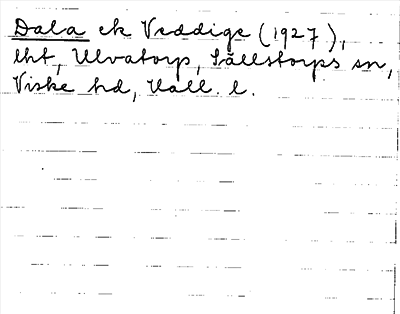 Dala ek Veddige (1927),
lht, Ulvatorp, Sällstorps sn,
Viske hd, Hall. l.